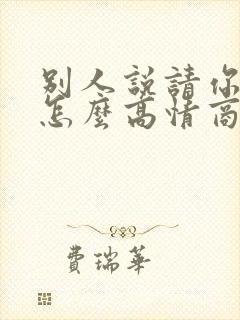 別人説請你
怎麼高情商
費瑞華